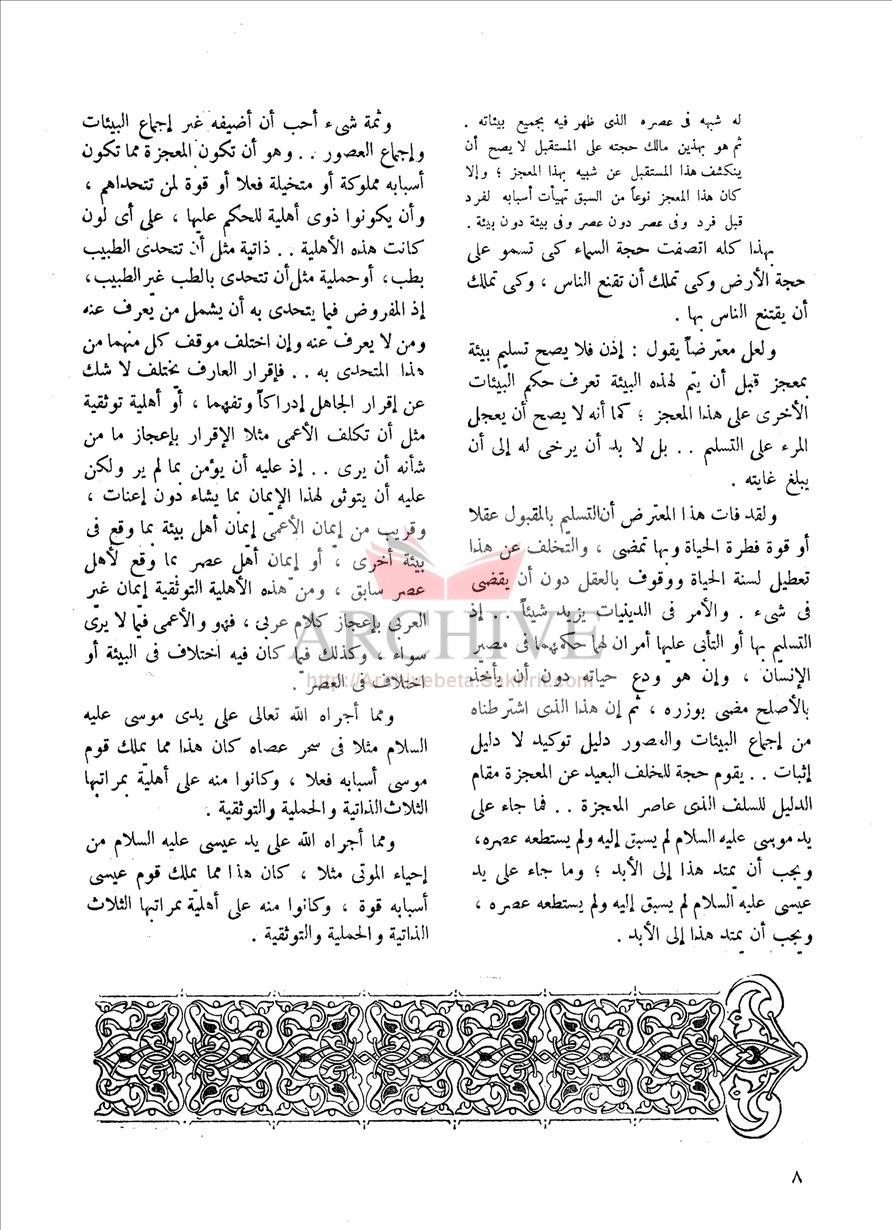 له شبهه فى عصره الذى ظهر فيه بجميع بيئاته .
ثم هو بهذين مالك حجته على المستقبل لا يصح أن
ينكشف هذا المستقبل عن شبيه بهذا المعجز ؛ وإلا
كان هذا المعجز نوعاً من السبق تهيأت أسبابه لفرد
قبل فرد وفى عصر دون عصر وفى بيئة دون بيئة .
بهذا كله اتصفت حجة السماء كى تسمو على
حجة الأرض وكى تملك أن تقنع الناس ، وكى تملك
أن يقتنع الناس بها .
ولعل معترضاً يقول : إذن فلا يصح تسليم بيئة
بمعجز قبل أن يتم لهذه البيئة تعرف حكم البيئات
الأخرى على هذا المعجز ؛ كما أنه لا يصح أن يعجل
المرء على التسليم . . بل لا بد أن يرخى له إلى أن
يبلغ غايته .
ولقد فات هذا المعترض أن التسليم بالمقبول عقلا
أو قوة فطرة الحياة وبها تمضى ، والتخلف عن هذا
تعطيل لسنة الحياة ووقوف بالعقل دون أن يقضى
فى شىء . والأمر فى الدينيات يزيد شيئاً . . إذ
التسليم بها أو التأبى عليها أمران لهما حكمهما فى مصير
الإنسان ، وإن هو ودع حياته دون أن يأخذ
بالأصلح مضى بوزره ، ثم إن هذا الذى اشترطناه
من إجماع البيئات والعصور دليل توكيد لا دليل
إثبات . . يقوم حجة للخلف البعيد عن المعجزة مقام
الدليل للسلف الذى عاصر المعجزة . . فما جاء على
يد موسى عليه السلام لم يسبق إليه ولم يستطعه عصره،
ويجب أن يمتد هذا إلى الأبد ؛ وما جاء على يد
عيسى عليه السلام لم يسبق إليه ولم يستطعه عصره ،
ويجب أن يمتد هذا إلى الأبد .
وثمة شىء أحب أن أضيفه غير إجماع البيئات
وإجماع العصور . . وهو أن تكون المعجزة مما تكون
أسبابه مملوكة أو متخيلة فعلا أو قوة لمن تتحداهم ،
وأن يكونوا ذوى أهلية للحكم عليها ، على أى لون
كانت هذه الأهلية . . ذاتية مثل أن تتحدى الطبيب
بطب، أو حملية مثل أن تتحدى بالطب غير الطبيب،
إذ المفروض فيما يتحدى به أن يشمل من يعرف عنه
ومن لا يعرف عنه وإن اختلف موقف كل منهما من
هذا المتحدى به . . فإقرار العارف يختلف لا شك
عن إقرار الجاهل إدراكاً وتفهما ، أو أهلية توثقية
مثل أن تكلف الأعمى مثلا الإقرار بإعجاز ما من
شأنه أن يرى . . إذ عليه أن يؤمن بما لم ير ولكن
عليه أن يتوثق لهذا الإيمان بما يشاء دون إعنات ،
وقريب من إيمان الأعمى إيمان أهل بيئة بما وقع فى
بيئة أخرى ، أو إيمان أهل عصر بما وقع لأهل
عصر سابق ، ومن هذه الأهلية التوثقية إيمان غير
العربى بإعجاز كلام عربى ، فهو والأعمى فيما لا يرى
سواء ، وكذلك فيما كان فيه اختلاف فى البيئة أو
اختلاف فى العصر .
ومما أجراه الله تعالى على يدى موسى عليه
السلام مثلا فى سحر عصاه كان هذا مما يملك قوم
موسى أسبابه فعلا ، وكانوا منه على أهلية بمراتبها
الثلاث الذاتية والحملية والتوثقية .
ومما أجراه الله على يد عيسى عليه السلام من
إحياء الموتى مثلا ، كان هذا مما يملك قوم عيسى
أسبابه قوة ، وكانوا منه على أهلية بمراتبها الثلاث
الذاتية والحملية والتوثقية .
ARCHIVE
http://Archivebeta.Sakhrit.com
٨